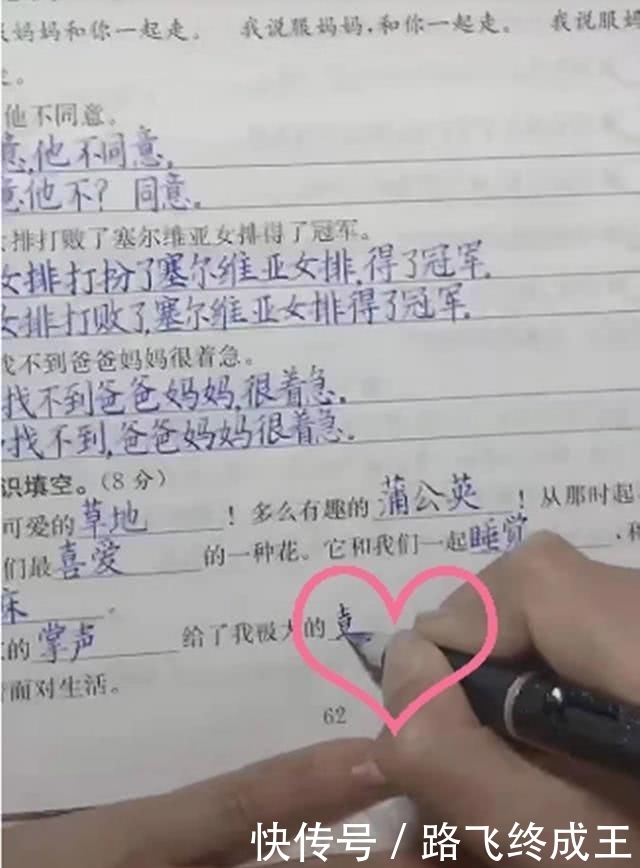 妈妈和你一起走。 我说服妈妈,和你一起走。 我说服妈
走。
他不同意。
意,他不同意。
意他不? 同意。
女排打败了塞尔维亚女排得了冠军。
女排打扮了塞尔维亚女排,得了冠军。
女排打败了,塞尔维亚女排得了冠军。
找不到爸爸妈妈很着急。
找不到爸爸妈妈,很着急。
找不到,爸爸妈妈很着急。
识填空。(8分)
可爱的草地!多么有趣的蒲公英!从那时起
们最喜爱的一种花。它和我们一起睡觉,和
床。
的掌声给了我极大的
面对生活。
62
快传号 / 路飞终成王